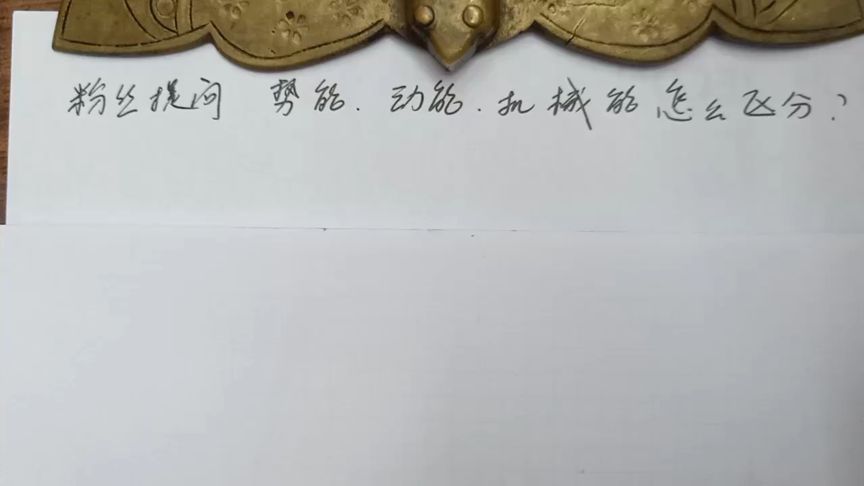 粉丝提问 势能.动能.机械能怎么区分?